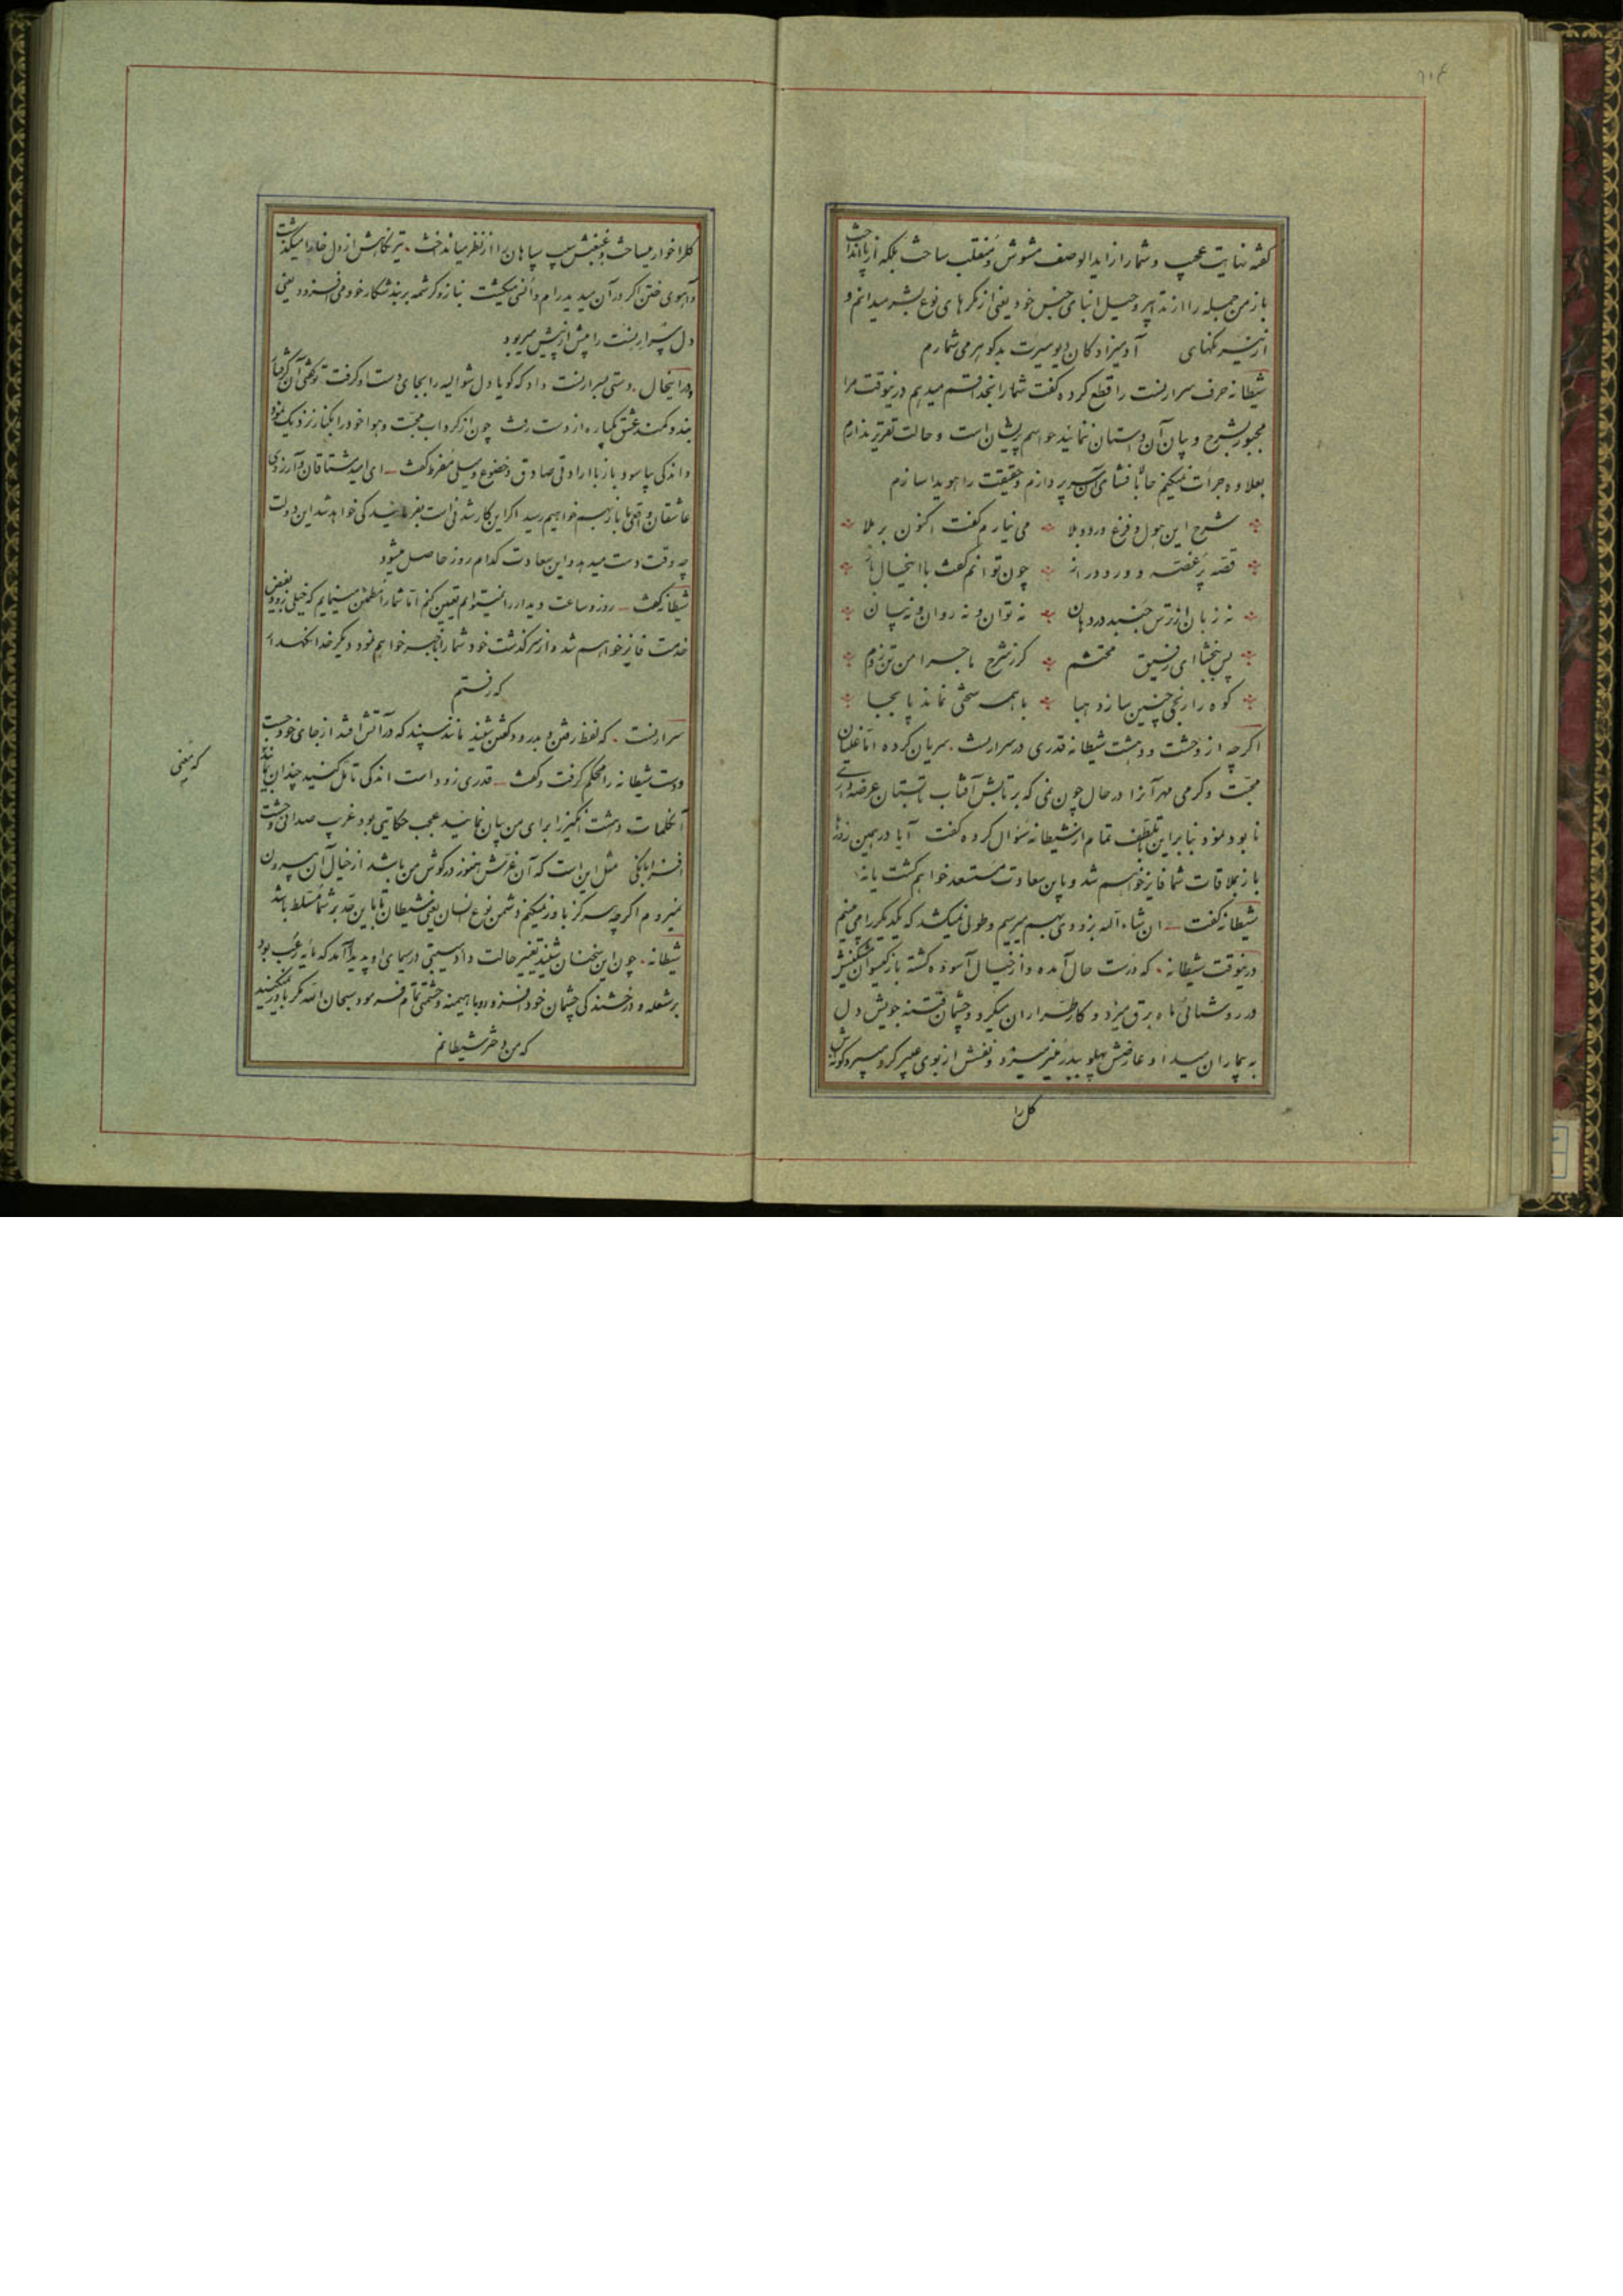 ۸۱۴
گفته نهایت عجب و شما را زاید الوصف مشوش و منقلب ساخت بلکه از پا انداخت
باز من جمله را از تدابیر و حیل ابنای جنس خود یعنی از مکرهای نوع بشر میدانم و
از نیرنگهای آدمیزادگان دیو سیرت بد گوهر می شمارم
شیطانه حرف سرارنست را قطع کرده گفت شما را بخدا قسم میدهم درینوقت مرا
مجبور بشرح و بیان آن داستان ننمائید حواسم پریشان است و حالت تقریر ندارم
بعلاوه جرأت نمیکنم حالا بافشای آن سر پردازم و حقیقت را هویدا سازم
شرح این هول و فزع درد و بلا می نیارم گفت اکنون بر ملا
قصه پر غصه و دور و دراز چون توانم گفت با اینحال باز
نه زبان از ترس جنبد در دهان نه توان و نه روان و نه بیان
پس ببخشا ای رفیق محتشم کز شرح ماجرا من تن زدم
کوه را رنجی چنین سازد هبا با همه سختی نماند پا بجا
اگرچه از وحشت و دهشت شیطانه قدری در سرارنست سریان کرده اما غلیان
محبت و گرمی مهر آنرا در حال چون نمی که بر تابش آفتاب تابستان عرضه داری
نابود نمود بنابراین بتلطف تمام از شیطانه سؤال کرده گفت آیا در همین روزها
باز بملاقات شما فایز خواهم شد و باین سعادت مستسعد خواهم گشت یا نه
شیطانه گفت ان شاء الله بزودی بهم میرسیم و طولی نمیکشد که یکدیگر را می بینیم
درینوقت شیطانه که درست حال آمده و از خیال آسوده گشته باز گیسوان مشکینش
در روشنائی ماه برق میزد و کار طراران میکرد و چشمان فتنه جویش دل
به بیماران میداد و عارضش پهلو ببدر منیر میزد و نفسش از بوی عبیر گرو میبرد گونه اش
گل را
گل را خوار میساخت و غبغبش سیب سپاهان را از نظر میانداخت تیر نگاهش از دل خارا میگذشت
و آهوی ختن اگر در آن میدید رام و انسی میگشت بناز و کرشمه بر بند شکار خود می افزود یعنی
دل سرارنست را بیش از پیش میربود
در اینحال دستی بسرارنست داد که گویا دل شوالیه را بجای دست او گرفت توگفتی آن گرفتار
بند و کمند عشق یکباره از دست رفت چون از گرداب محبت و هوا خود را بکنار نزدیک نمود
و اندکی بیاسود باز با ارادتی صادق و خضوع و میلی مفرط گفت ای امید مشتاقان و آرزوی
عاشقان وقتی ما باز بهم خواهیم رسید اگر این کار شدنی است بفرمائید کی خواهد شد این دولت
چه وقت دست میدهد و این سعادت کدام روز حاصل میشود
شیطانه گفت روز و ساعت دیدار را نمیتوانم تعیین کنم اما شما را مطمئن مینمایم که خیلی زود بفیض
خدمت فایز خواهم شد و از سرگذشت خود شما را باخبر خواهم نمود دیگر خدا نگهدار
که رفتم
سرارنست که لفظ رفتن و بدرود گفتن شنید مانند سپند که در آتش افتد از جای خود جست
و دست شیطانه را محکم گرفت و گفت قدری زود است اندکی تأمل کنید چندان بمانید
که معنی
آنکلمات دهشت انگیز را برای من بیان نمائید عجب حکایتی بود غریب صدائی وحشت
افزا بانگی مثل این است که آن غرش هنوز در گوش من باشد از خیال آن بیرون
نمیروم اگرچه هرگز باور نمیکنم دشمن نوع انسان یعنی شیطان تا باین حد بر شما مسلط باشد
شیطانه چون این سخنان شنید تغییر حالت داد هیبتی در سیمای او پدید آمد که مایه رعب بود
بر شعله و درخشندگی چشمان خود افزوده و با هیمنه و حشمتی تمام فرمود سبحان الله مگر باور نمیکنید
که من دختر شیطانم